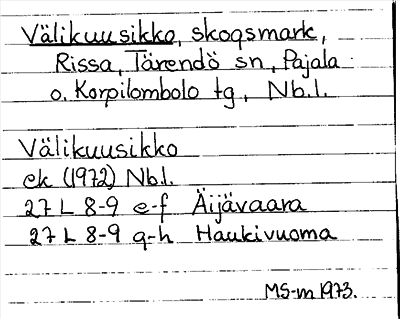 Välikuusikko, skogsmark,
Rissa, Tärendö sn, Pajala
o. Korpilombolo tg, Nb.l.
Välikuusikko
ek (1972) Nb.l.
27 L 8-9 e-f Äijävaara
27 L 8-9 g-h Haukivuoma
MS-m 1973.